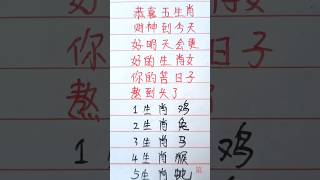 恭喜五生肖
财神到今天
好明天会更
好的生肖女
你的苦日子
熬到头了
1生肖 鸡
2生肖 兔
3生肖 马
4生肖 猴
第
5生肖 蛇